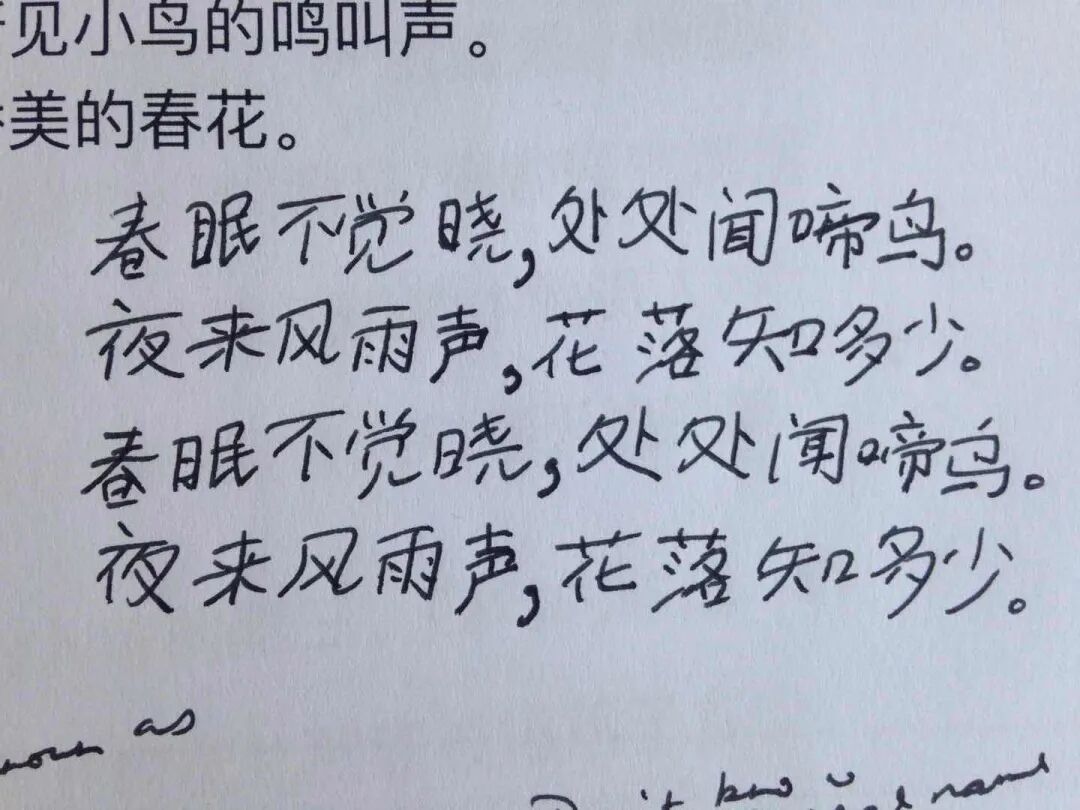 见小鸟的鸣叫声。
美的春花。
春眠不觉晓,处处闻啼鸟。
夜来风雨声,花落知多少。
春眠不觉晓,处处闻啼鸟。
夜来风雨声,花落知多少。
as
know
name